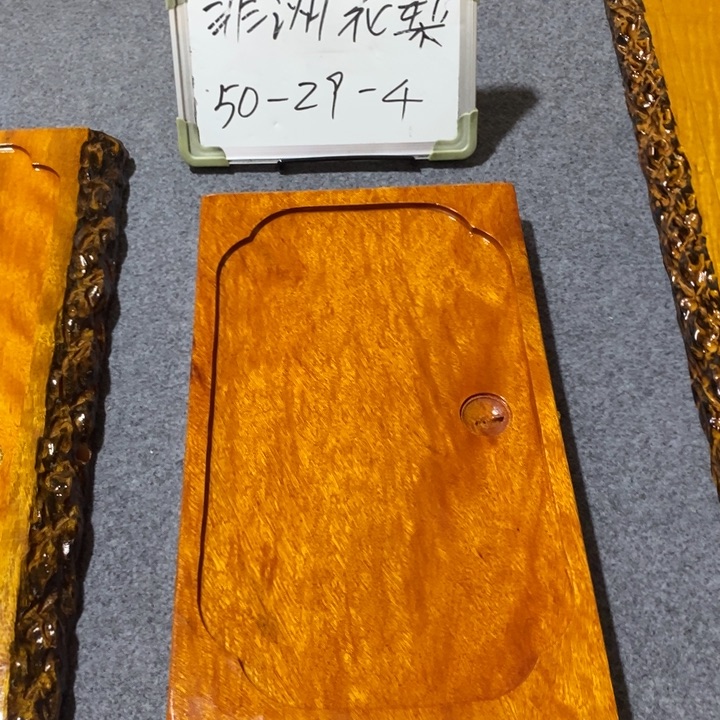 非洲花梨
50-29-4